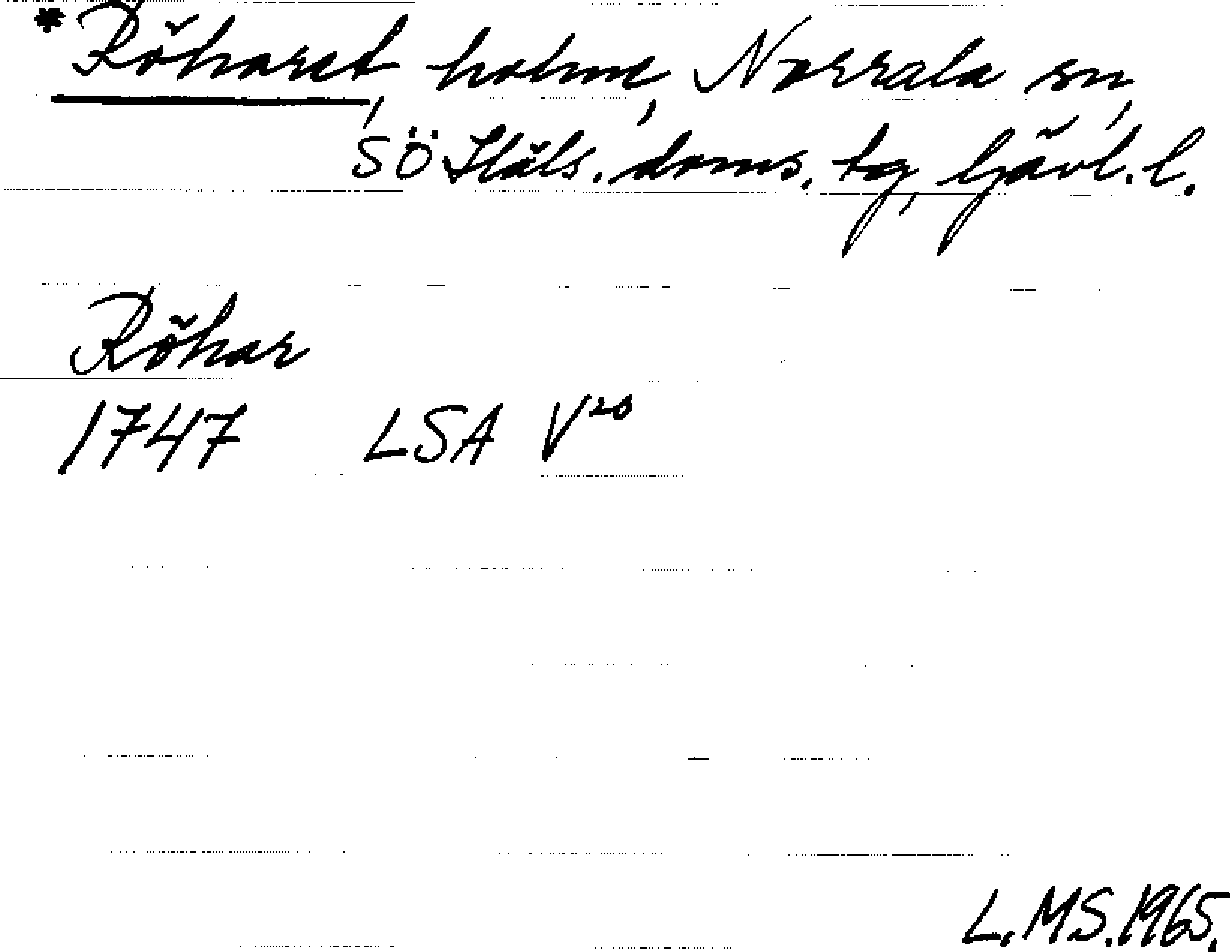 *Röharet, holme, Norrala sn,
SÖ Häls. doms. tg, Gävl. l.
Röhar
1747 LSA V20
L.MS.1965.